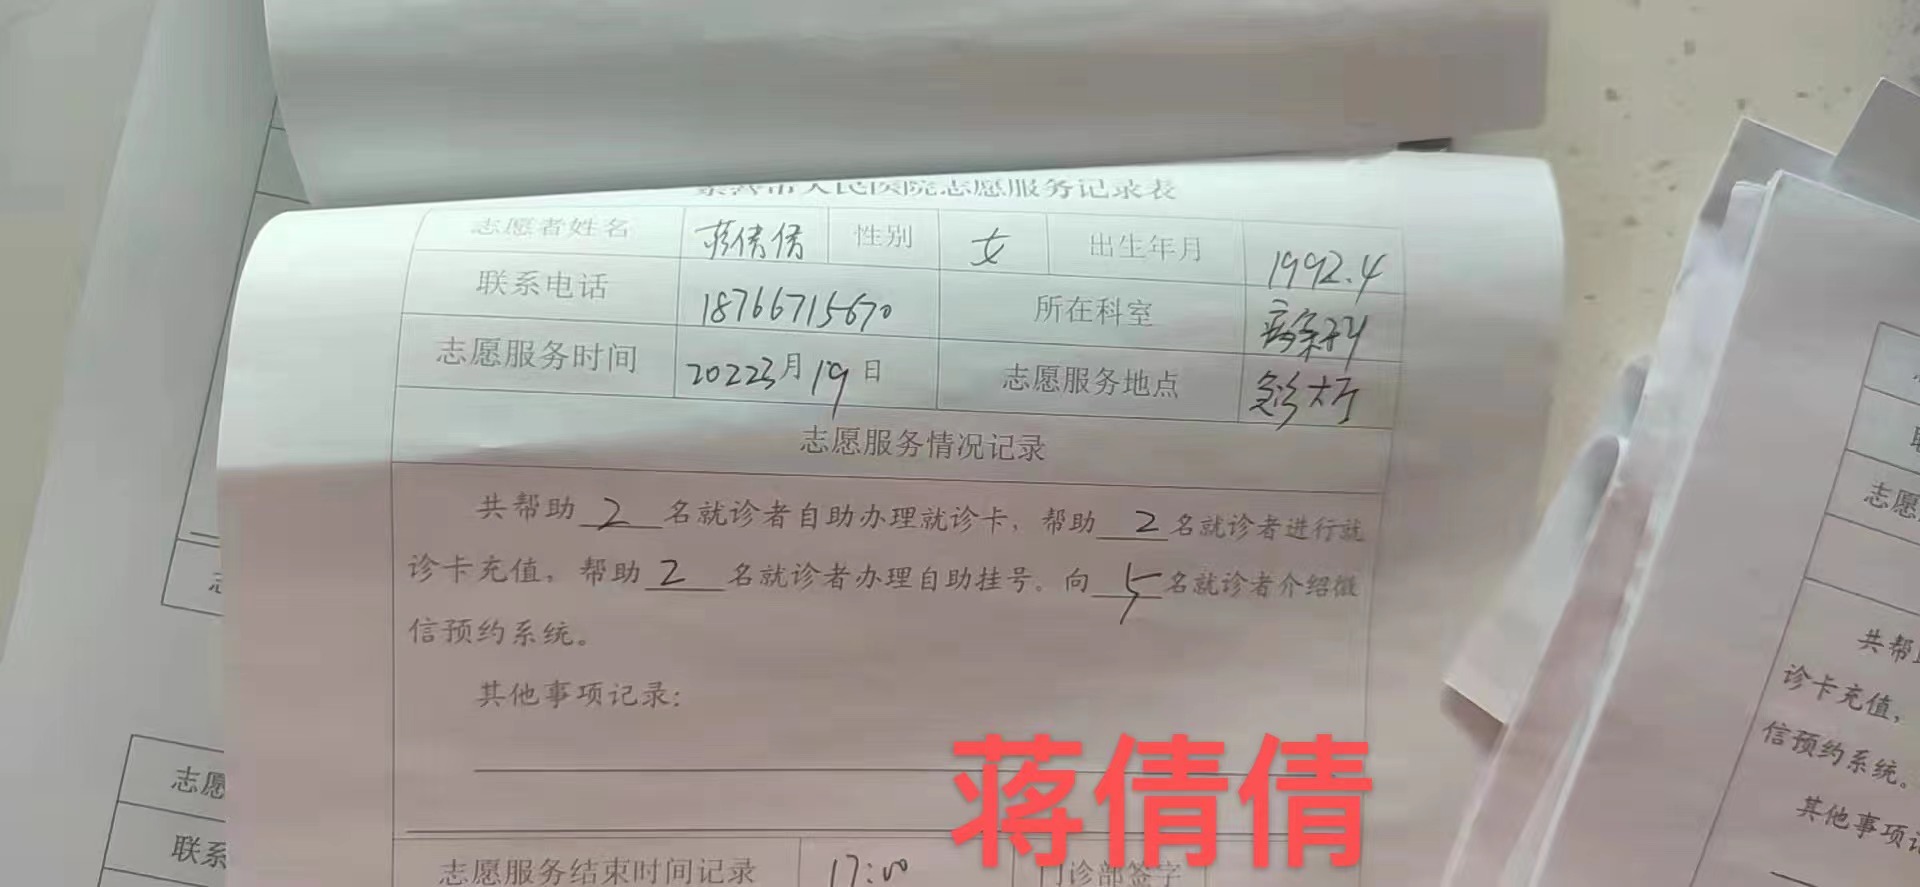 人民医院志愿服务记录表
志愿者姓名 蒋倩倩 性别 女 出生年月 1992.4
联系电话 18766715670 所在科室
志愿服务时间 20223月19日 志愿服务地点 急诊大厅
志愿服务情况记录
共帮助 2 名就诊者自助办理就诊卡，帮助 2 名就诊者进行就
诊卡充值，帮助 2 名就诊者办理自助挂号。向 5 名就诊者介绍微
信预约系统。
其他事项记录：
蒋倩倩
志愿服务结束时间记录 17:00 门诊部签字
志愿
联系
志愿
共帮
诊卡充值，
信预约系统。
其他事项